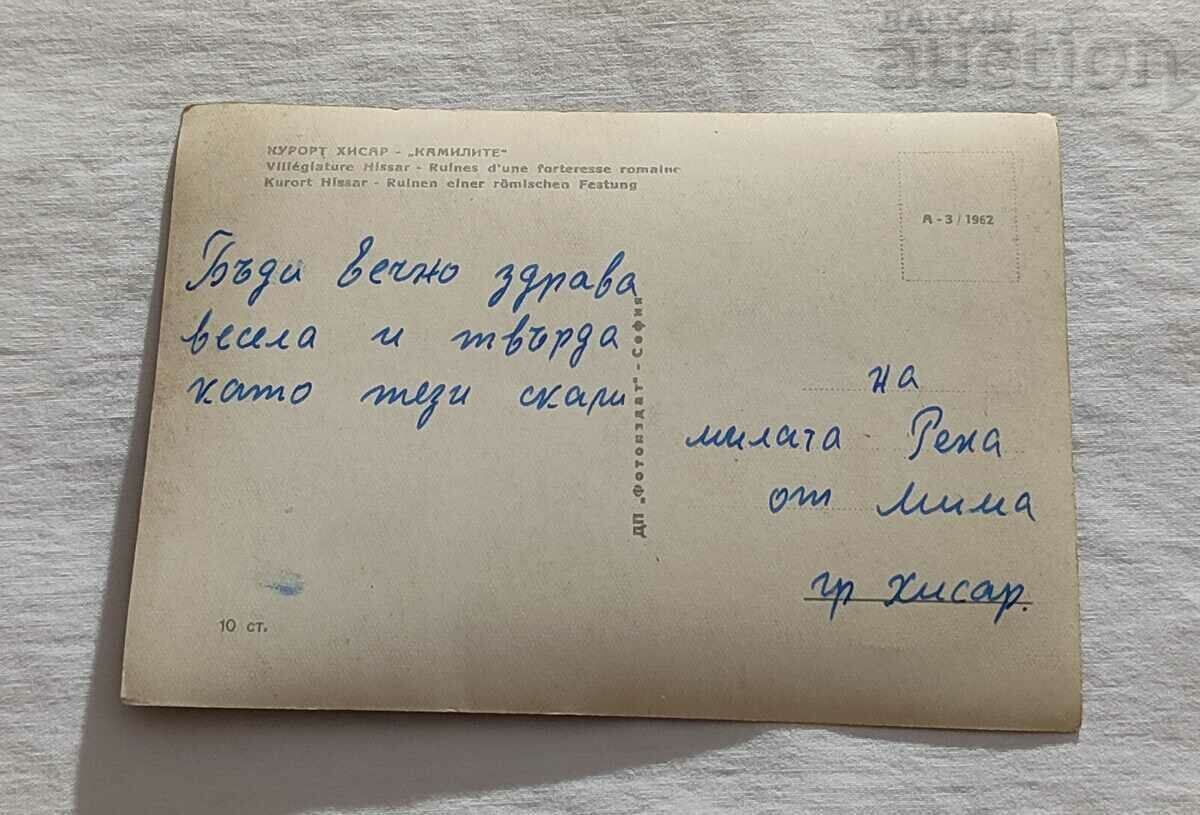 BALKAN
auction
КУРОРТ ХИСАР - „КАМИЛИТЕ“
Villégiature Hissar - Ruines d'une forteresse romaine
Kurort Hissar - Ruinen einer römischen Festung
А - 3 / 1962
Бъди вечно здрава
весела и твърда
като тези скали
ДП „Фотоиздат“ - София
на
милата Рена
от Мима
гр Хисар.
10 ст.